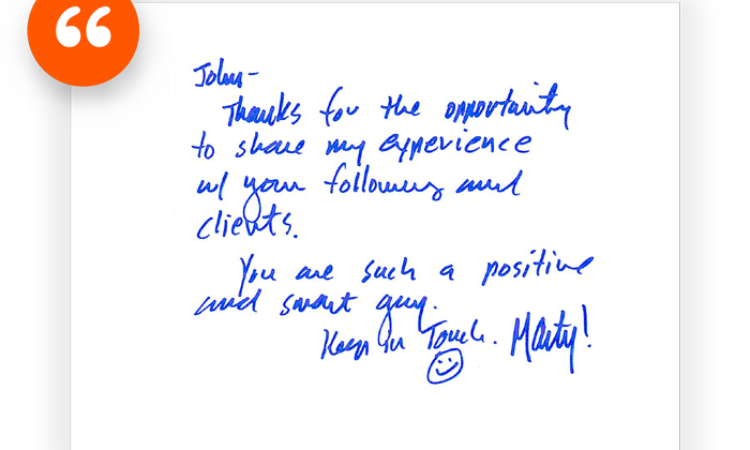 John-
Thanks for the opportunity
to share my experience
w/ your followers and
clients.
You are such a positive
and smart guy.
Keep in Touch. Marty!